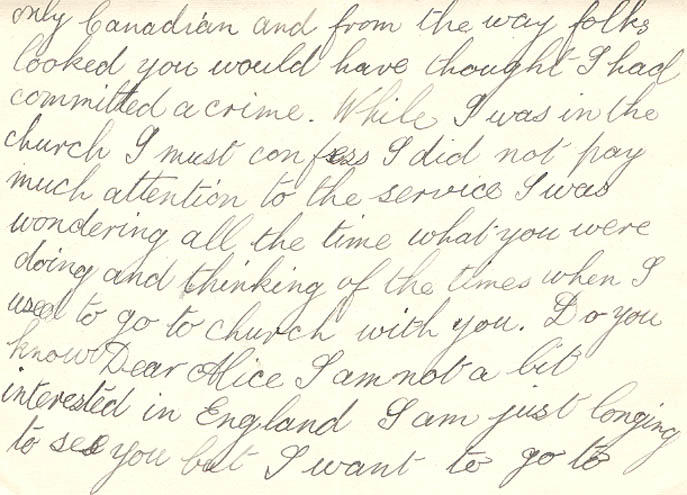 only Canadian and from the way folks
looked you would have thought I had
committed a crime. While I was in the
church I must confess I did not pay
much attention to the service I was
wondering all the time what you were
doing and thinking of the times when I
used to go to church with you. Do you
know Dear Alice I am not a bit
interested in England I am just longing
to see you but I want to go to